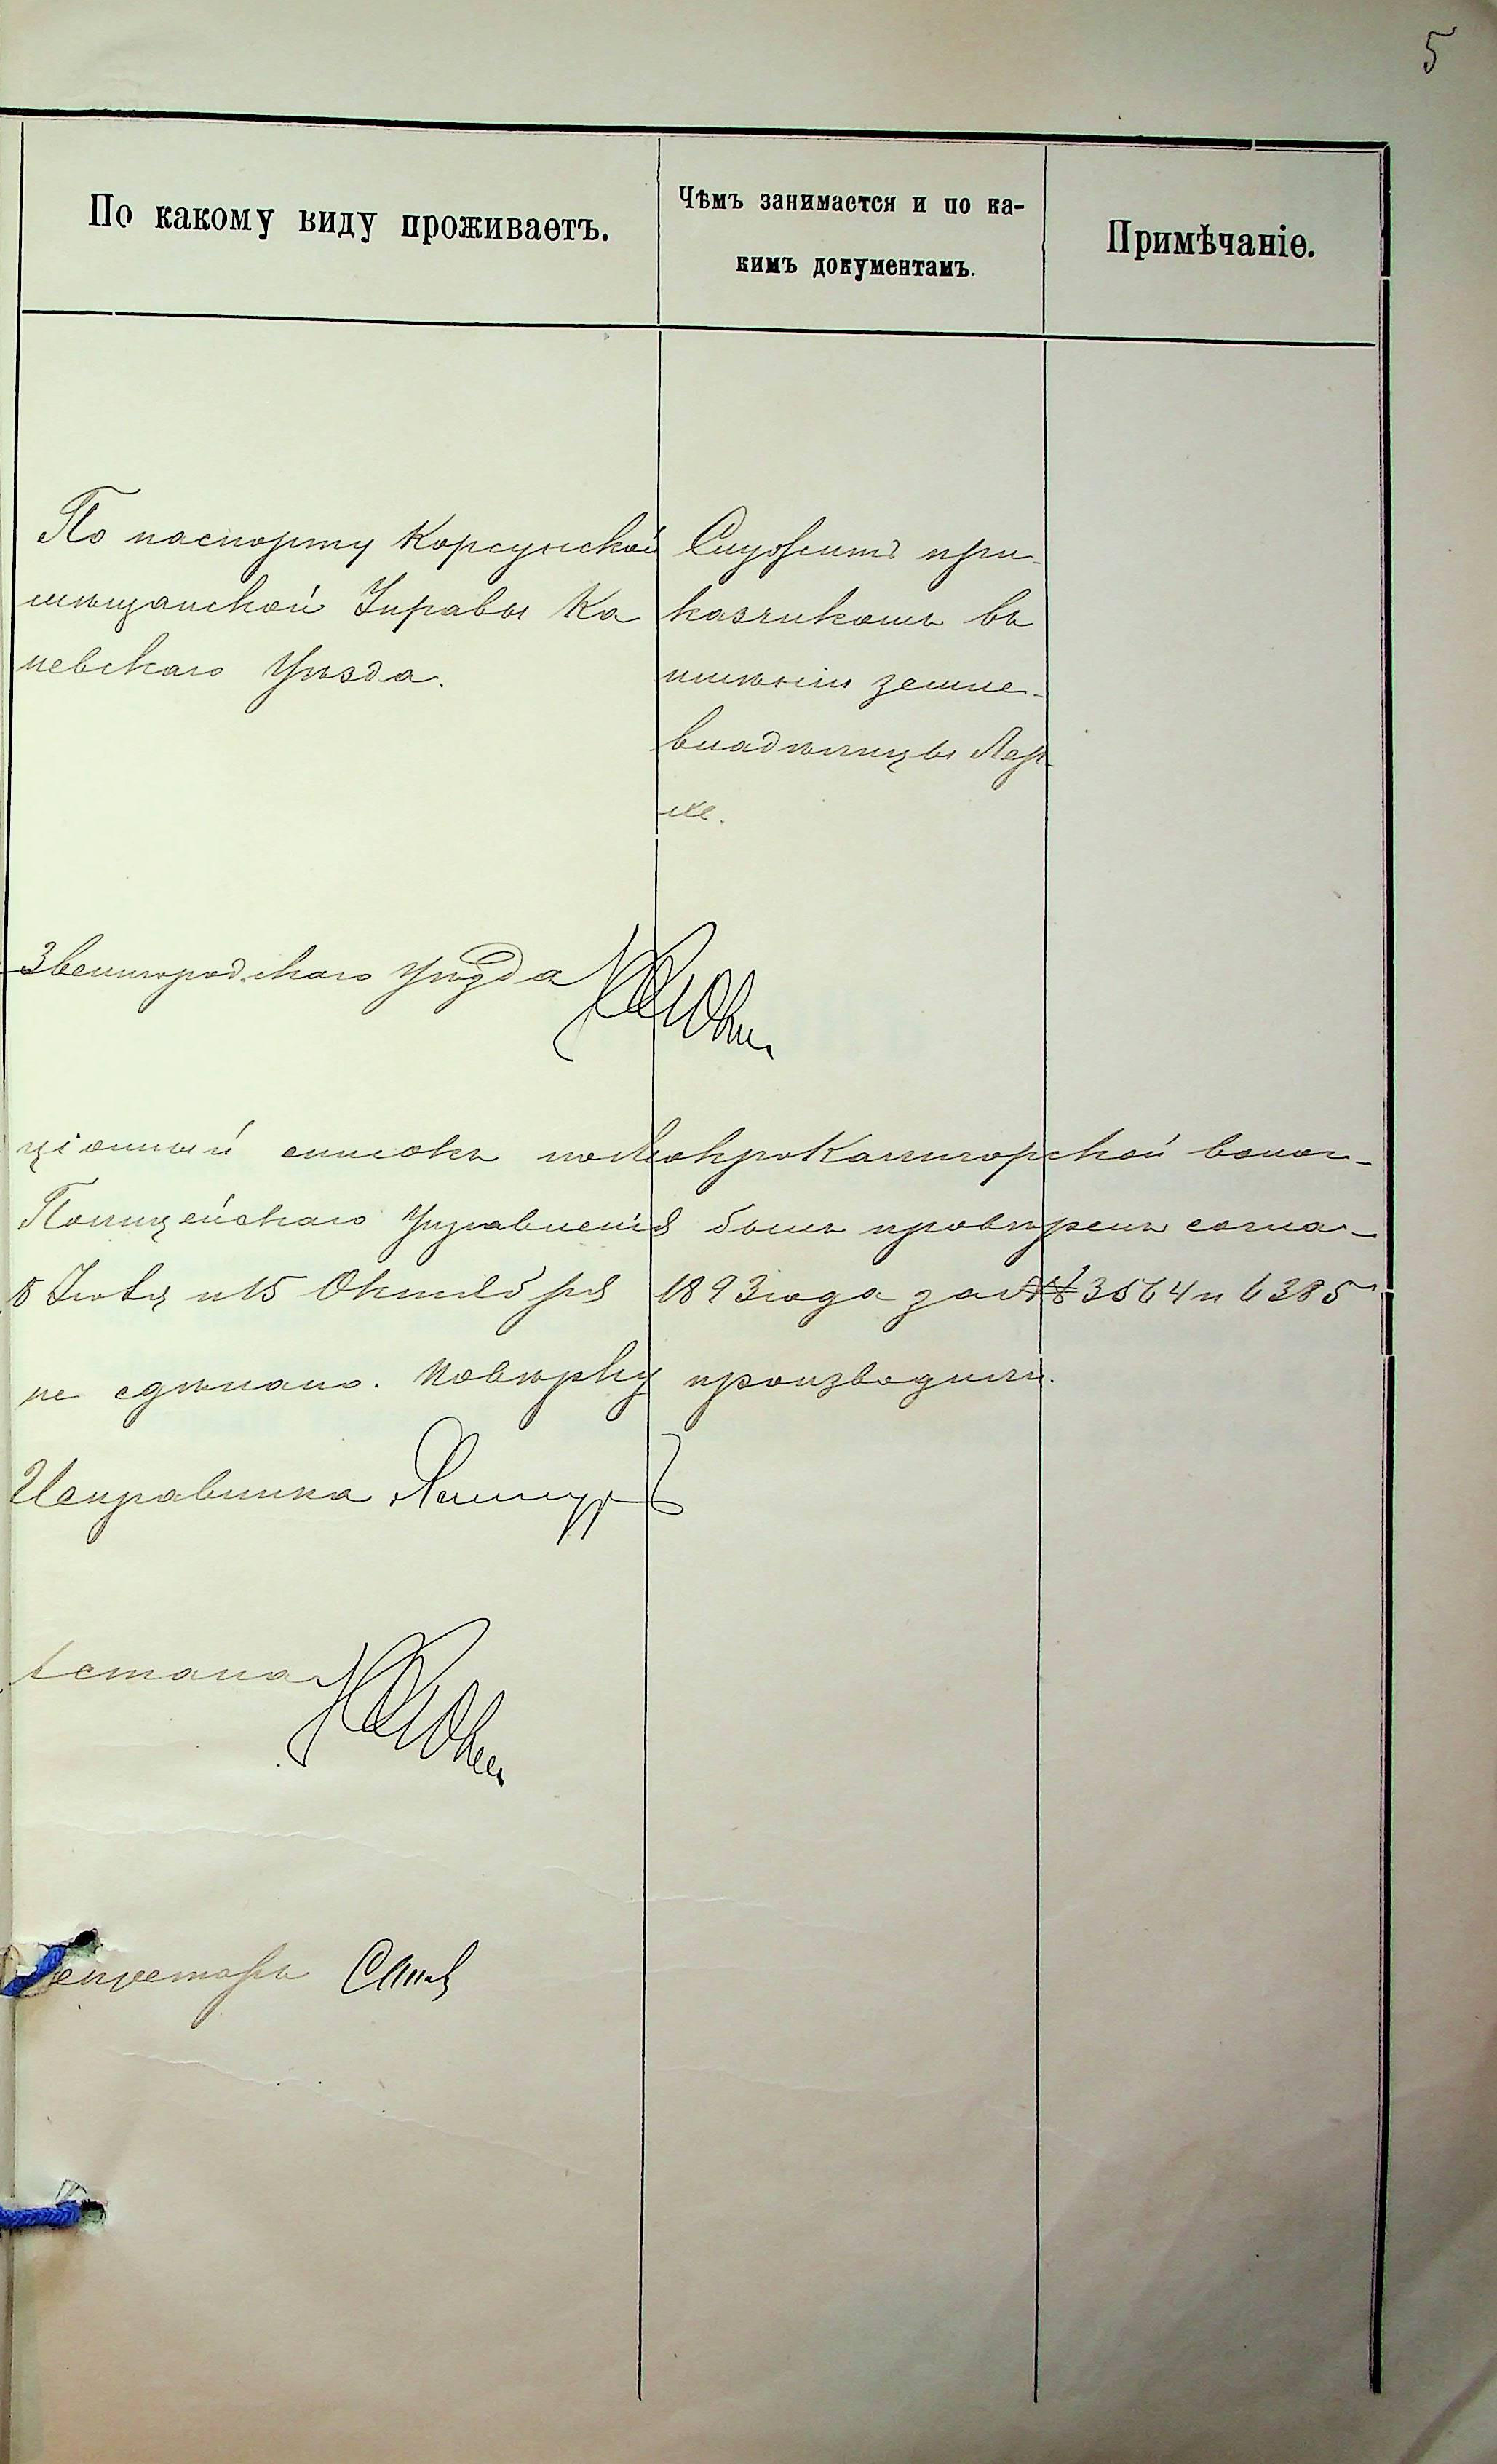 5
По какому виду проживаетъ.
Чѣмъ занимается и по ка-
кимъ документамъ.
Примѣчаніе.
По паспорту Корсунской
мѣщанской Управы Ка
невскаго Уѣзда.
Служитъ при-
казчикомъ въ
имѣніи земле-
владѣлицы Лер-
хе.
Звенигородскаго уѣзда
ціонный списокъ по Мокрокалигорской волос-
Полицейскаго Управленія былъ провѣренъ согла-
Іюля и 15 Октября 1893 года за №№ 3564 и 6385
не сдѣлано. Повѣрку производили.
Исправника
стана
екретарь